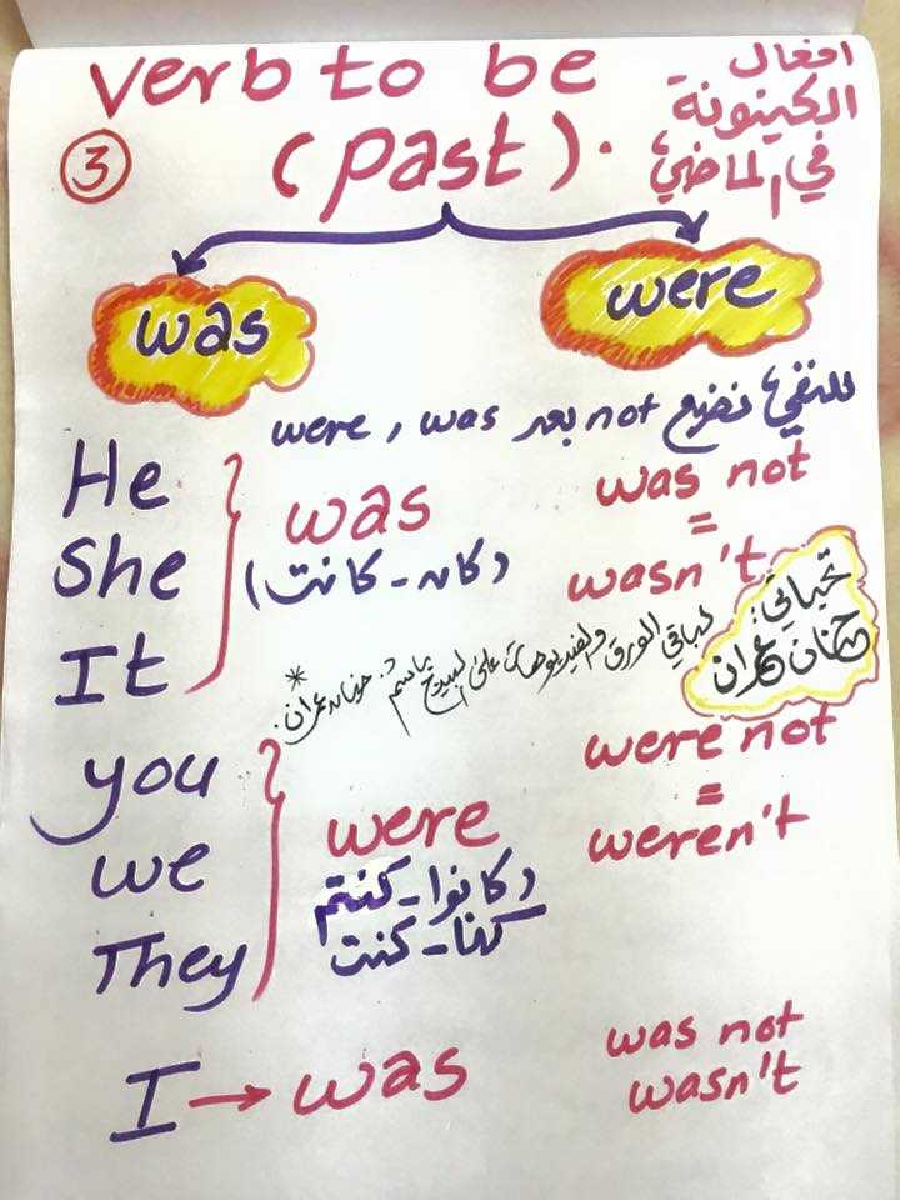 verb to be
(past).
افعال
الكينونة
في الماضي
3
was
were
للنفي نضع not بعد was , were
He
She
It
was
(كان - كانت)
was not
=
wasn't
تحياتي:
حنان عمران
* لباقي الورق والفيديوهات على البيدج باسم: حنان عمران.
you
we
They
were
(كانوا - كنتم
كنا - كنت
were not
=
weren't
I → was
was not
wasn't